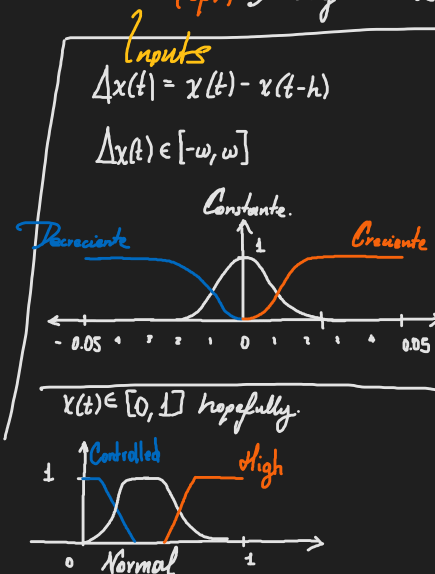 Inputs
Δx(t) = x(t) - x(t-h)
Δx(t) ∈ [-ω, ω]
Constante.
Decreciente 1 Creciente
- 0.05 4 3 2 1 0 1 2 3 4 0.05
x(t) ∈ [0, 1] hopefully.
Controlled
1 High
0 Normal 1